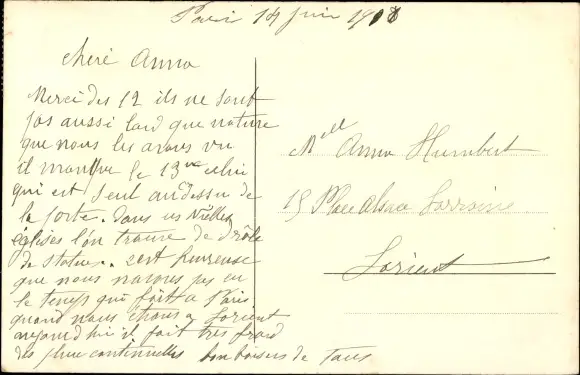 Paris 14 juin 1918
chère Anna
Merci des 12 ils ne sont
pas aussi laid que nature
que nous les avons vu
il manque le 13me celui
qui est seul au dessu de
la porte. dans ces Vielles
églises l'on trouve de drôle
de statue.. est heureuse
que nous navons pas eu
le temps qui fait a Paris
quand nous étions a Lorient
aujourd hui il fait très froid
des pluie continuelles bon baisers de tous
Mell Anna Humbert
15 Place Alsace Lorraine
Lorient